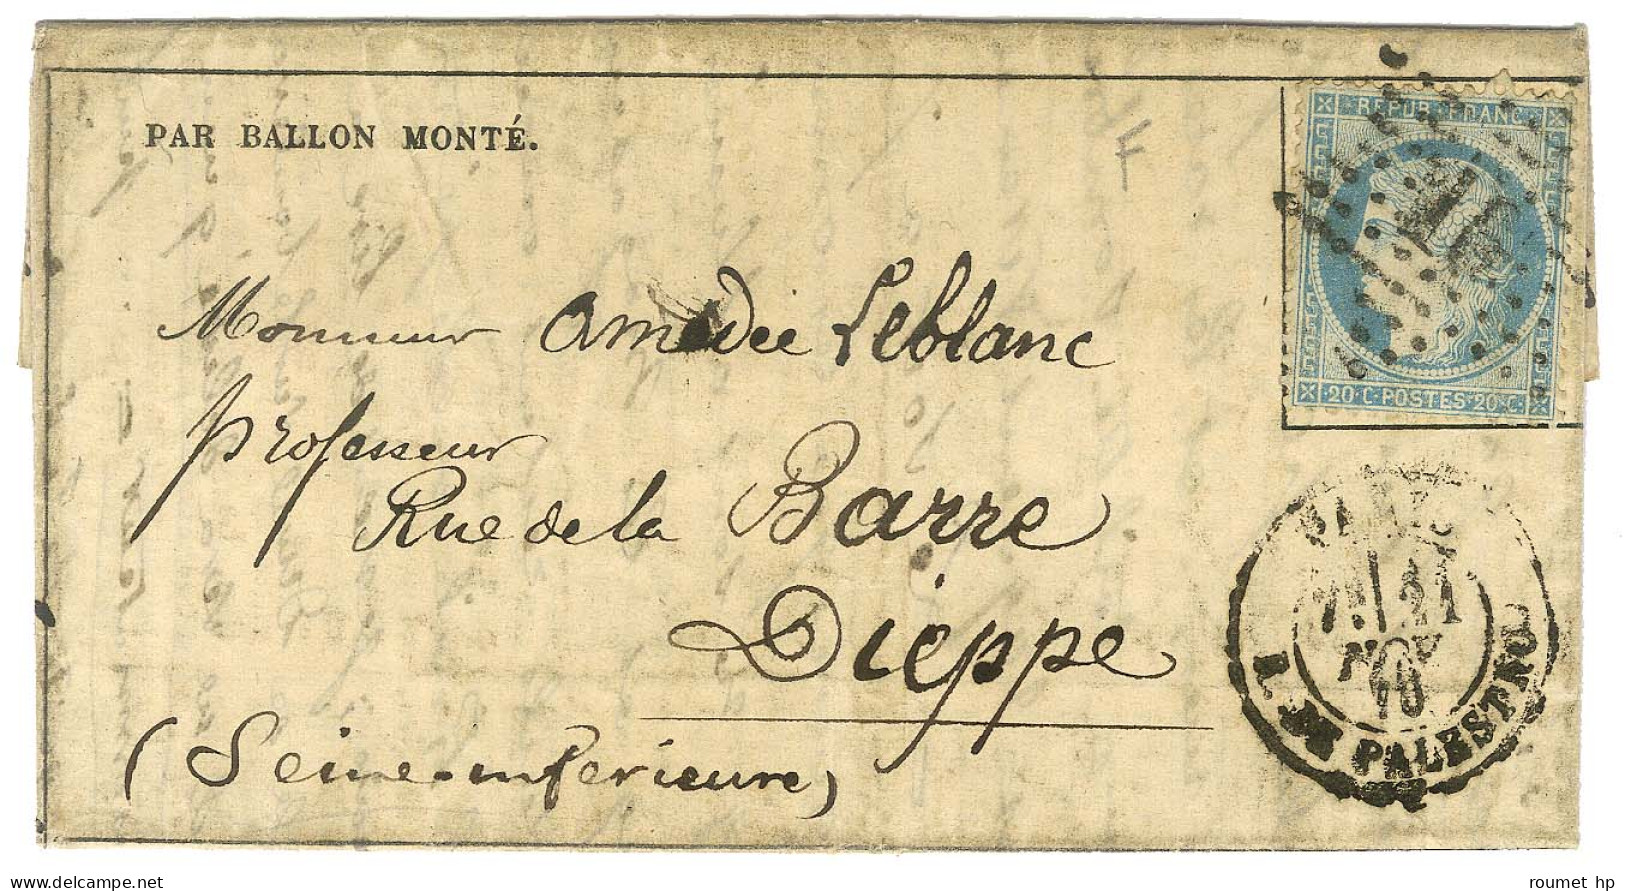 PAR BALLON MONTÉ.
F
REPUB. FRANC.
16
20 C. POSTES 20 C.
Monsieur Amedée Leblanc
professeur
Rue de la Barre
Dieppe
(Seine-inferieure)
PARIS
21
NOV
70
R. DE PALESTRO
roumet hp